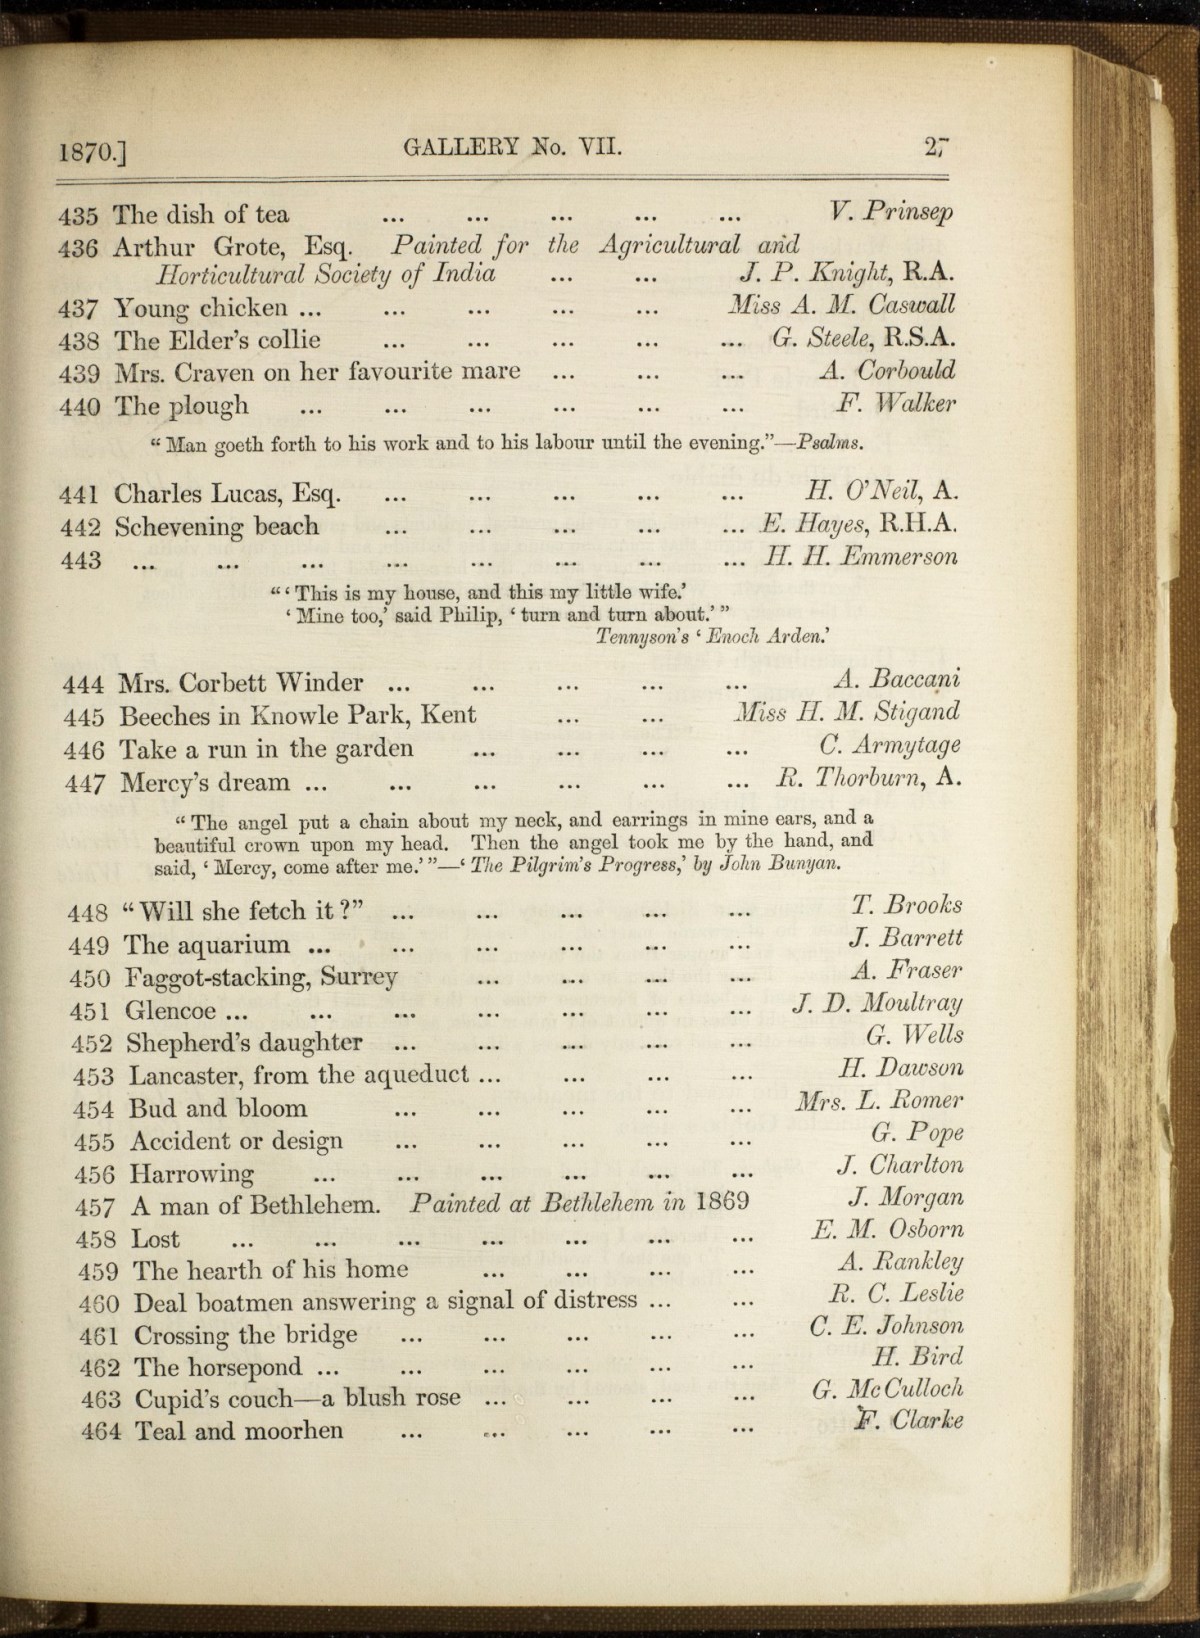 1870.] GALLERY No. VII. 27
435 The dish of tea ... ... ... ... ... V. Prinsep
436 Arthur Grote, Esq. Painted for the Agricultural and
Horticultural Society of India ... ... J. P. Knight, R.A.
437 Young chicken ... ... ... ... ... Miss A. M. Caswall
438 The Elder's collie ... ... ... ... ... G. Steele, R.S.A.
439 Mrs. Craven on her favourite mare ... ... ... A. Corbould
440 The plough ... ... ... ... ... ... F. Walker
“ Man goeth forth to his work and to his labour until the evening.”—Psalms.
441 Charles Lucas, Esq. ... ... ... ... ... H. O'Neil, A.
442 Schevening beach ... ... ... ... ... E. Hayes, R.H.A.
443 ... ... ... ... ... ... ... ... H. H. Emmerson
“ ‘ This is my house, and this my little wife.’
‘ Mine too,’ said Philip, ‘ turn and turn about.’ ”
Tennyson's ‘ Enoch Arden.’
444 Mrs. Corbett Winder ... ... ... ... ... A. Baccani
445 Beeches in Knowle Park, Kent ... ... Miss H. M. Stigand
446 Take a run in the garden ... ... ... ... C. Armytage
447 Mercy's dream ... ... ... ... ... ... R. Thorburn, A.
“ The angel put a chain about my neck, and earrings in mine ears, and a
beautiful crown upon my head. Then the angel took me by the hand, and
said, ‘ Mercy, come after me.’ ”—‘ The Pilgrim's Progress,’ by John Bunyan.
448 “ Will she fetch it ?” ... ... ... ... ... T. Brooks
449 The aquarium ... ... ... ... ... ... J. Barrett
450 Faggot-stacking, Surrey ... ... ... ... A. Fraser
451 Glencoe ... ... ... ... ... ... ... J. D. Moultray
452 Shepherd's daughter ... ... ... ... ... G. Wells
453 Lancaster, from the aqueduct ... ... ... ... H. Dawson
454 Bud and bloom ... ... ... ... ... Mrs. L. Romer
455 Accident or design ... ... ... ... ... G. Pope
456 Harrowing ... ... ... ... ... ... J. Charlton
457 A man of Bethlehem. Painted at Bethlehem in 1869 J. Morgan
458 Lost ... ... ... ... ... ... ... E. M. Osborn
459 The hearth of his home ... ... ... ... A. Rankley
460 Deal boatmen answering a signal of distress ... ... R. C. Leslie
461 Crossing the bridge ... ... ... ... ... C. E. Johnson
462 The horsepond ... ... ... ... ... ... H. Bird
463 Cupid's couch—a blush rose ... ... ... ... G. McCulloch
464 Teal and moorhen ... ... ... ... ... F. Clarke